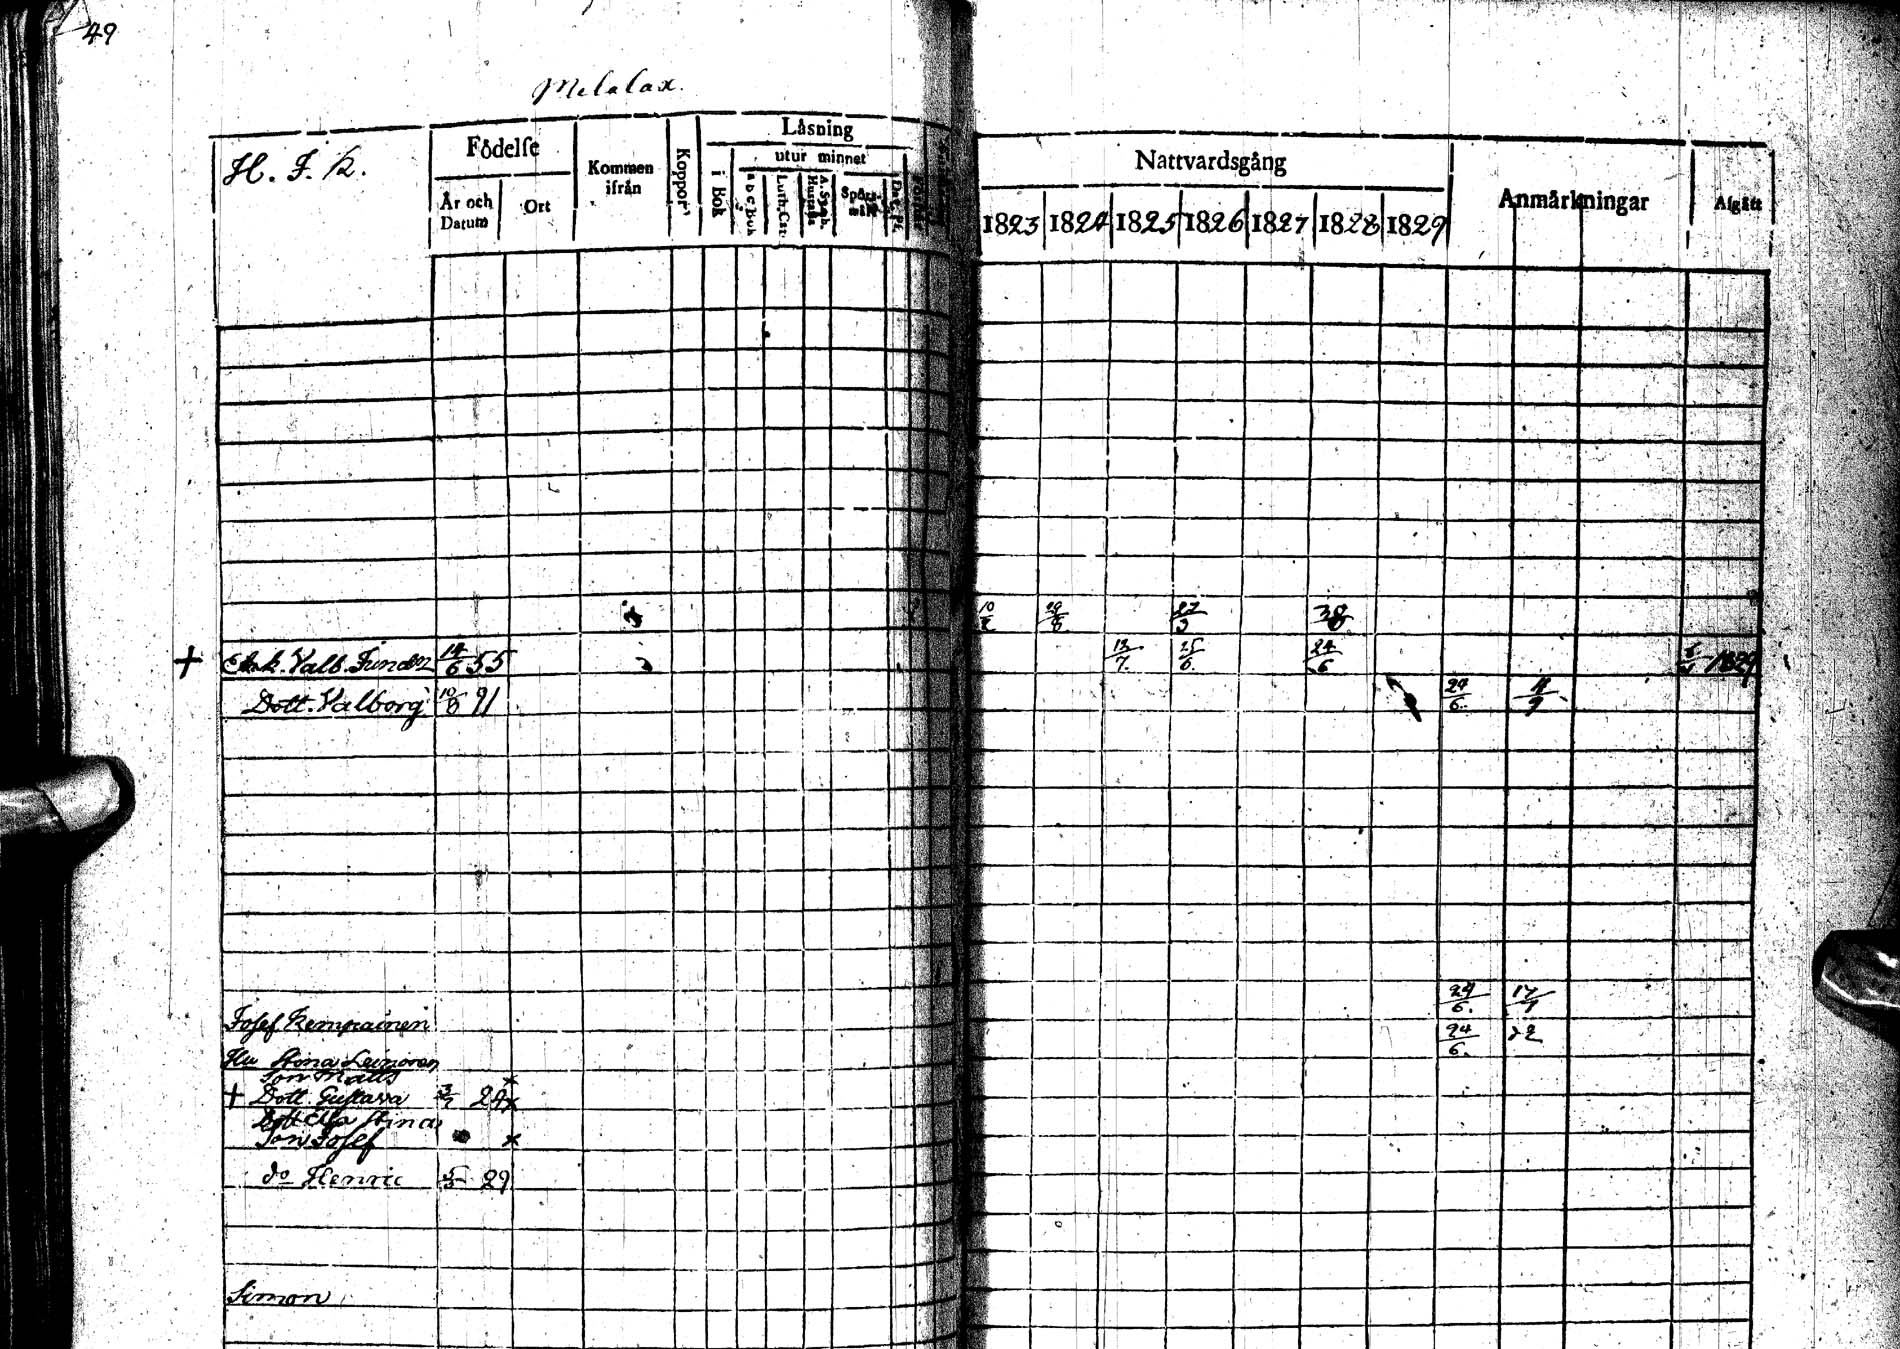 49
Melalax.
H. F. K.
Födelse
År och Datum
Ort
Kommen ifrån
Koppor
Läsning
i Bok
utur minnet
a b c Bok
Luth. Cat.
A. Symb. Hustafla
Spörsmål
Nattvardsgång
1823 1824 1825 1826 1827 1828 1829
Anmärkningar
Afgått
10/2 29/8 27/3
+ Enk. Valb. Funden 14/6 55 13/7. 25/6. 24/6 1829
Dott. Valborg 10/8 91 24/6. 4/9
29/6. 17/9
Josef Kempainen
24/6. 22
Hu Stina Leinonen
Son Matts x
+ Dott. Gustava 3/7 24 x
Dott Elsa Stina
Son Josef x
do Henric 5/5 29
Simon